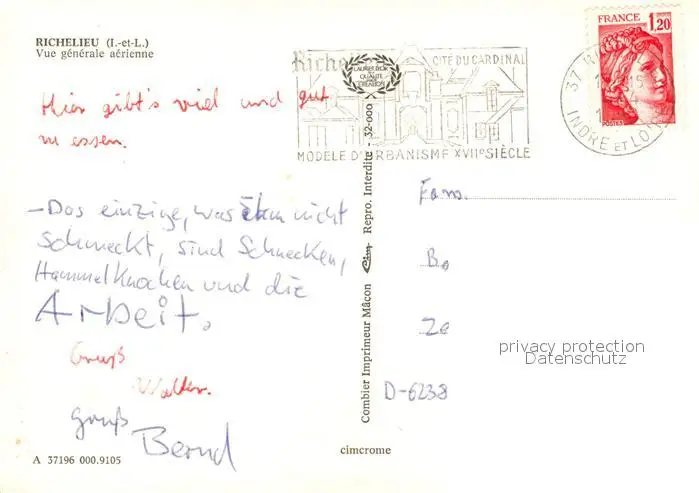 RICHELIEU (I.-et-L.)
Vue générale aérienne
Hier gibt's viel und gut
zu essen.
- Das einzige, was ihm nicht
schmeckt, sind Schnecken,
Hammelknochen und die
Arbeit.
Gruß
Walter.
Gruß
Bernd
A 37196 000.9105
Richelieu
CITÉ DU CARDINAL
MODÈLE D'URBANISME XVIIe SIÈCLE
LAURIER D'OR
QUALITÉ
CRÉATION
Combier Imprimeur Mâcon Cim Repro. Interdite - 32-000
cimcrome
FRANCE 1,20
POSTES
37
15
INDRE ET LOIRE
Fam.
Bo
Ze
D-6238
privacy protection
Datenschutz